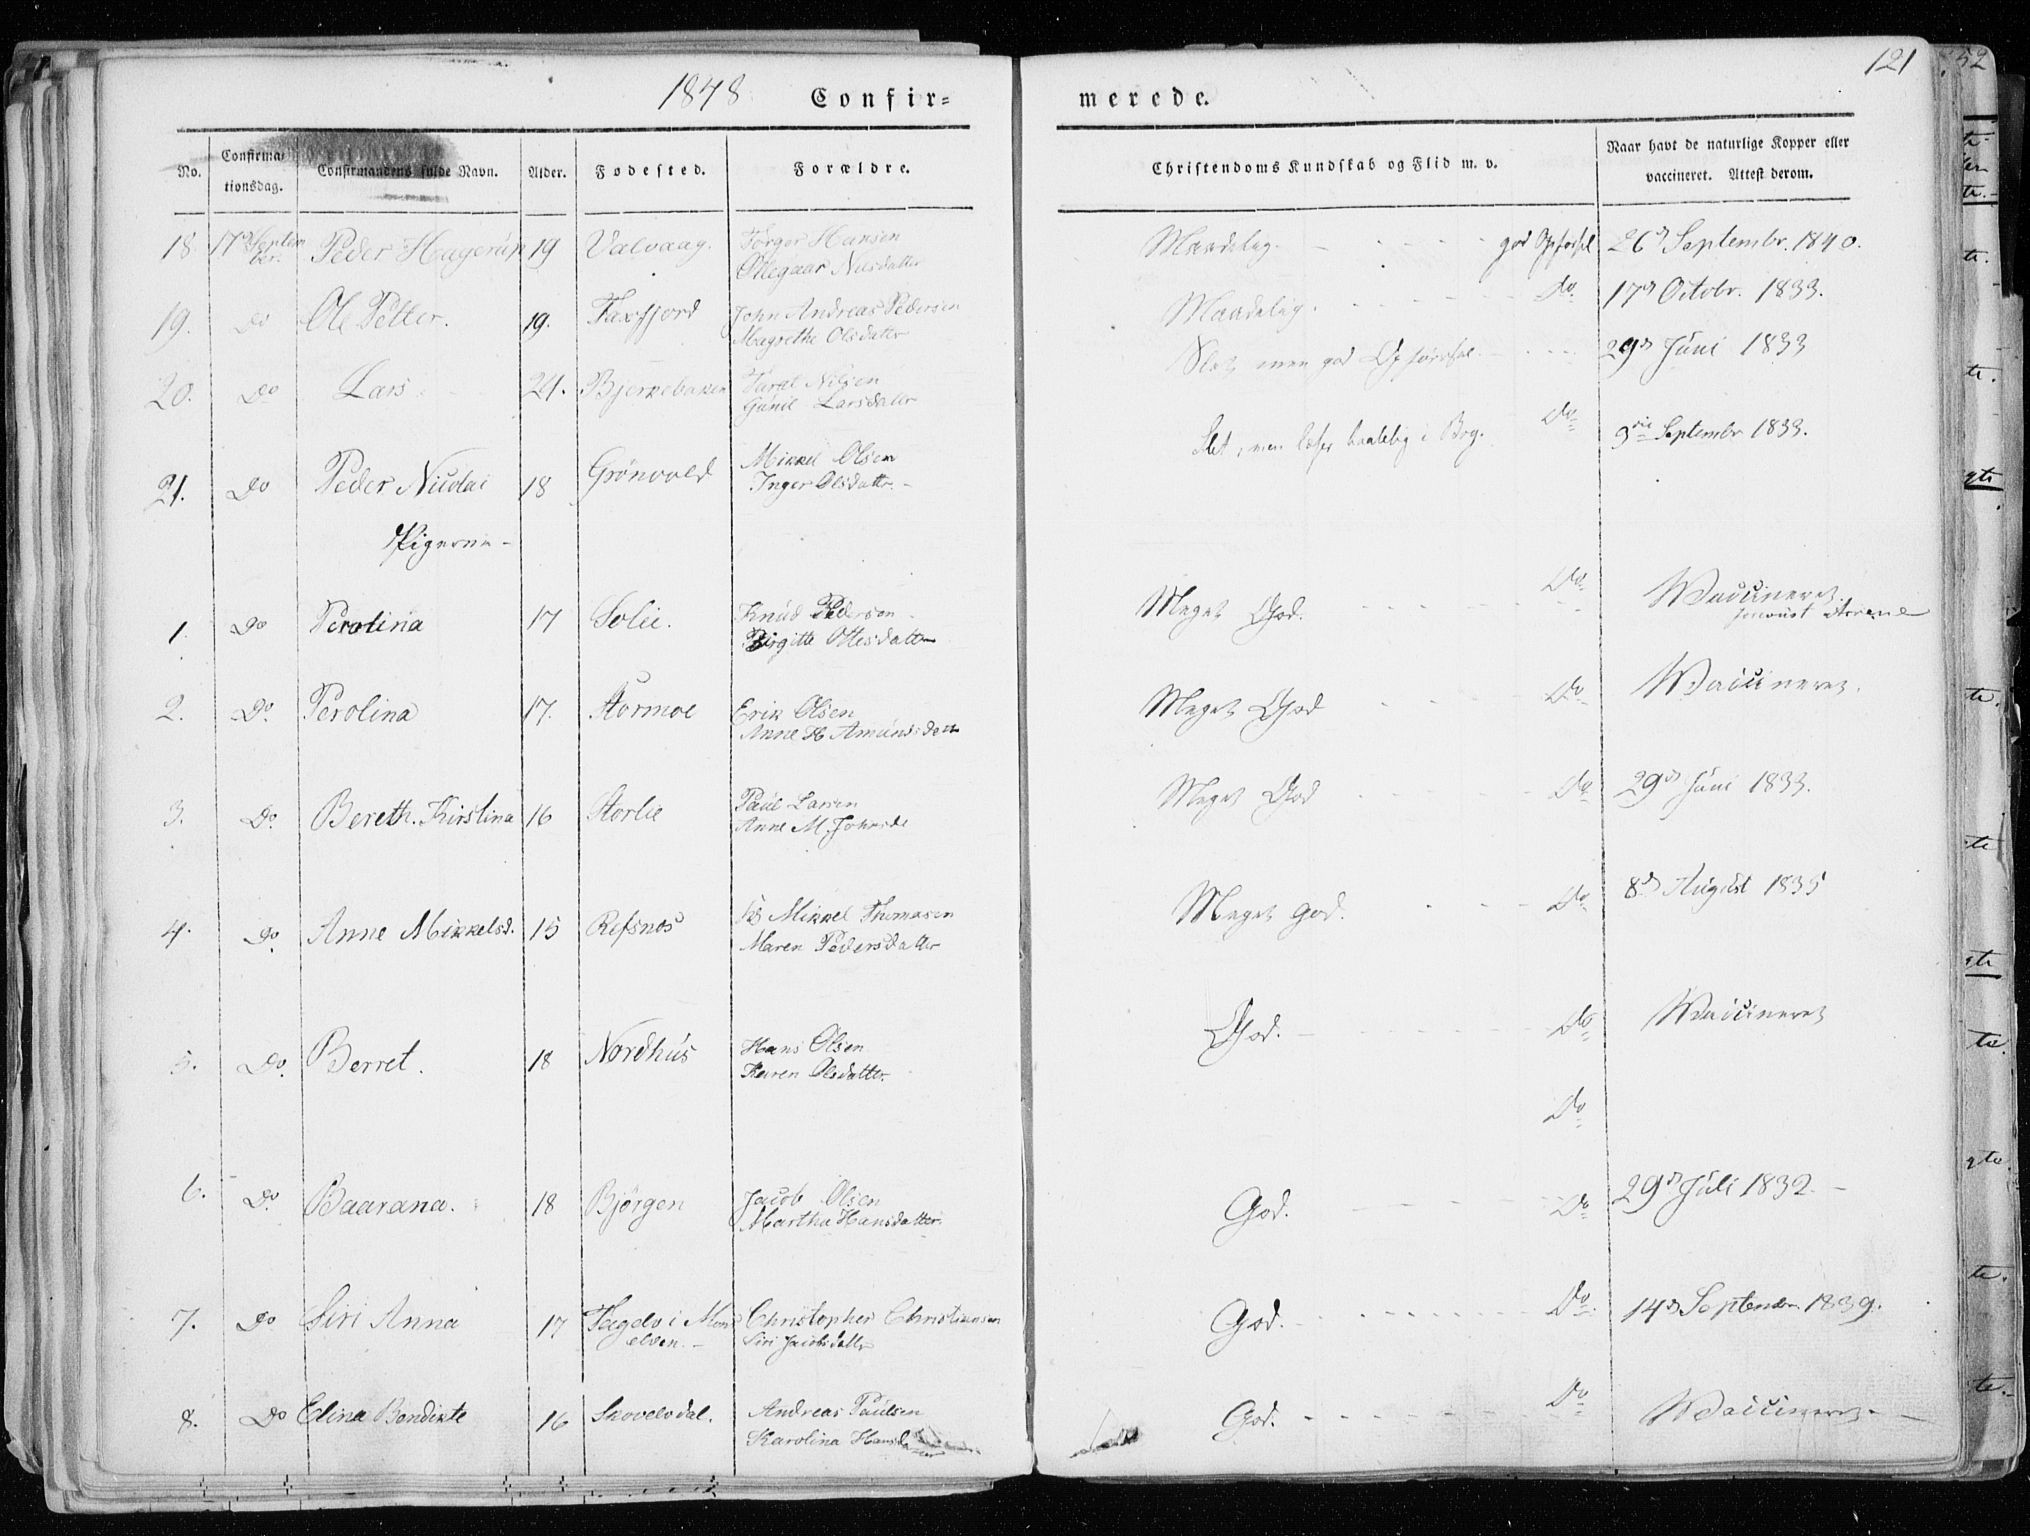 1848 Confir= merede. 121
No. Confirma= tionsdag. Confirmandens fulde Navn. Alder. Fødested. Forældre. Christendoms Kundskab og Flid m. v. Naar havt de naturlige Kopper eller vaccineret. Attest derom.
18 17de Septem ber. Peder Hagerup 19 Valvaag. Jørger Hansen Maadelig. god Opførsel 26de Septembr. 1840.
Ollegaar Nilsdatter
19. Do Ole Petter. 19. Faxfjord John Andreas Pedersen Maadelig. Do. 17de Octobr. 1833.
Magrethe Olsdatter
20. Do Lars 21. Bjerkebaken Taral Nilsen Slet men god Opførsel. 29de Juni 1833
Gunil Larsdatter
21. Do Peder Nicolai 18 Grönvold Mikkel Olsen Slet, men læser taalelig i Bog. Do 3die Septembr 1833.
Inger Olsdattr.
Pigerne
1. Do Perolina 17 Solie. Knud Pedersen Meget God. Do Vaccineret
Birgitte Ottesdatter
2. Do. Perolina 17. Stormoe Erik Olsen Meget God Do Vaccineret.
Anne H Amundsdattr
3. Do. Bereth. Kirstina 16 Storlie Paul Larsen Meget God Do 29de Juni 1833.
Anne M. Johnsd.
4. Do. Anne Mikkelsd. 15 Refsnes Mikkel Thomasen Meget god. Do 8de August 1835
Maren Pedersdatter
5. Do. Berret. 18 Nordhus Hans Olsen God. Do Vaccineret
Karen Olsdatter.
Do
6. Do. Baarana. 18 Bjørgen Jacob Olsen God. Do 29de Juli 1832.
Martha Hansdatter.
7. Do Siri Anna 17 Fagelv i Mons elven. Christopher Christiansen God. Do. 14de Septembr. 1839.
Siri Jacobsdattr
8. Do Elina Bendikte 16 Skovelvdal. Andreas Paulsen God. Do Vaccineret.
Karolina Hansdatter